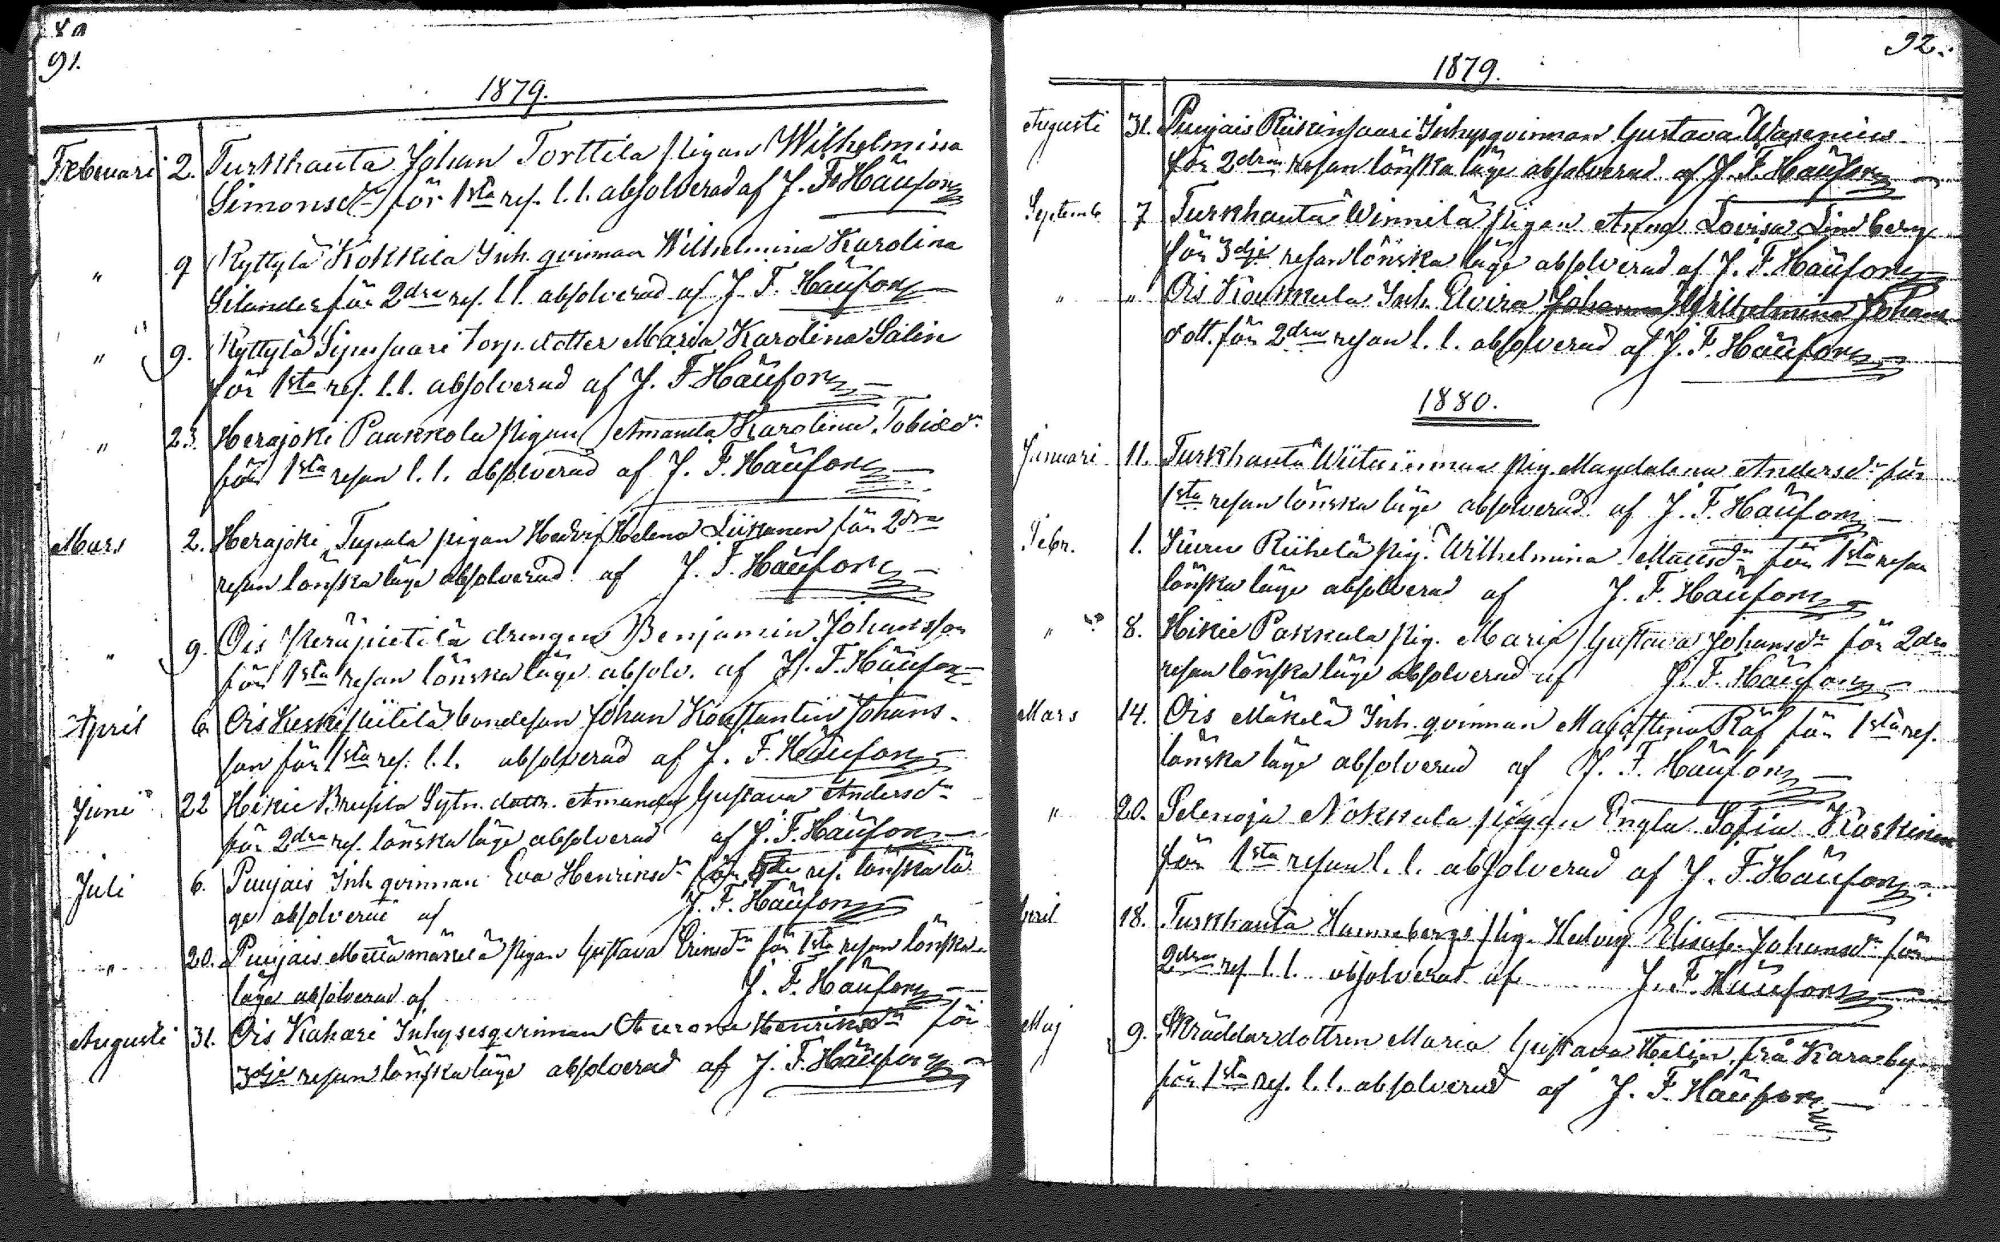 91.
1879.
Februari 2. Turkhauta Johan Torttila pigan Wilhelmina
Simonsdr för 1sta res. l. l. absolverad af J. F. Häüfors
" 9 Ryttylä Kokkila Inh. qvinnan Wilhelmina Karolina
Silander för 2dra res. l. l. absolverad af J. F. Häüfors
" 9. Ryttylä torp. dotter Maria Karolina Salin
för 1sta res. l. l. absolverad af J. F. Häüfors
" 23. Herajoki Paakkola pigan Amanda Karolina Tobiasdr
för 1sta resan l. l. absolverad af J. F. Häüfors
Mars 2. Herajoki Tupala pigan Hedvig Helena Liikanen för 2dra
resan lönska läge absolverad af J. F. Häüfors
" 9. Ois drengen Benjamin Johansson
för 1sta resan lönska läge absolv. af J. F. Häüfors
April 6. Ois bondeson Johan Konstantin Johans-
son för 1sta res. l. l. absolverad af J. F. Häüfors
Juni 22 Hikie Brusila Sytn. dottr. Amanda Gustava Andersdr
för 2dra res. lönska läge absolverad af J. F. Häüfors
Juli 6. Punjais Inh qvinnan Eva Henriksdr för res. lönska lä
ge absolverad af J. F. Häüfors
" 20. Punjais Mettämäkelä pigan Gustava Eriksdr för 1sta resan lönska
läge absolverad af J. F. Häüfors
Augusti 31. Ois Kahari Inhysesqvinnan Aurora Henriksdr för
3dje resan lönska läge absolverad af J. F. Häüfors
92.
1879.
Augusti 31. Punjais Inhysqvinnan Gustava Wasenius
för 2dra resan lönska läge absolverad af J. F. Häüfors
Septemb. 7 Turkhauta Winnilä pigan Anna Lovisa Lindberg
för 3dje resan lönska läge absolverad af J. F. Häüfors
" " Ois Inh. Elvira Johanna Wilhelmina Johans
dott. för 2dra resan l. l. absolverad af J. F. Häüfors
1880.
Januari 11. Turkhauta pig. Magdalena Andersdr för
1sta resan lönska läge absolverad af J. F. Häüfors
Febr. 1. Riihelä pig. Wilhelmina Mattsdr för 1sta resan
lönska läge absolverad af J. F. Häüfors
" 8. Hikie Pakkala pig. Maria Gustava Johansdr för 2dra
resan lönska läge absolverad af J. F. Häüfors
Mars 14. Ois Mäkelä Inh. qvinnan Maja Stina Räf för 1sta res.
lönska läge absolverad af J. F. Häüfors
" 20. Selenoja Nokkala pigan Engla Sofia Koskinen
för 1sta resan l. l. absolverad af J. F. Häüfors
April 18. Turkhauta Hannebergs pig. Hedvig Elisab. Johansdr för
2dra res l. l. absolverad af J. F. Häüfors
Maj 9. Skräddardottren Maria Gustava Helin från Karaby
för 1sta res. l. l. absolverad af J. F. Häüfors